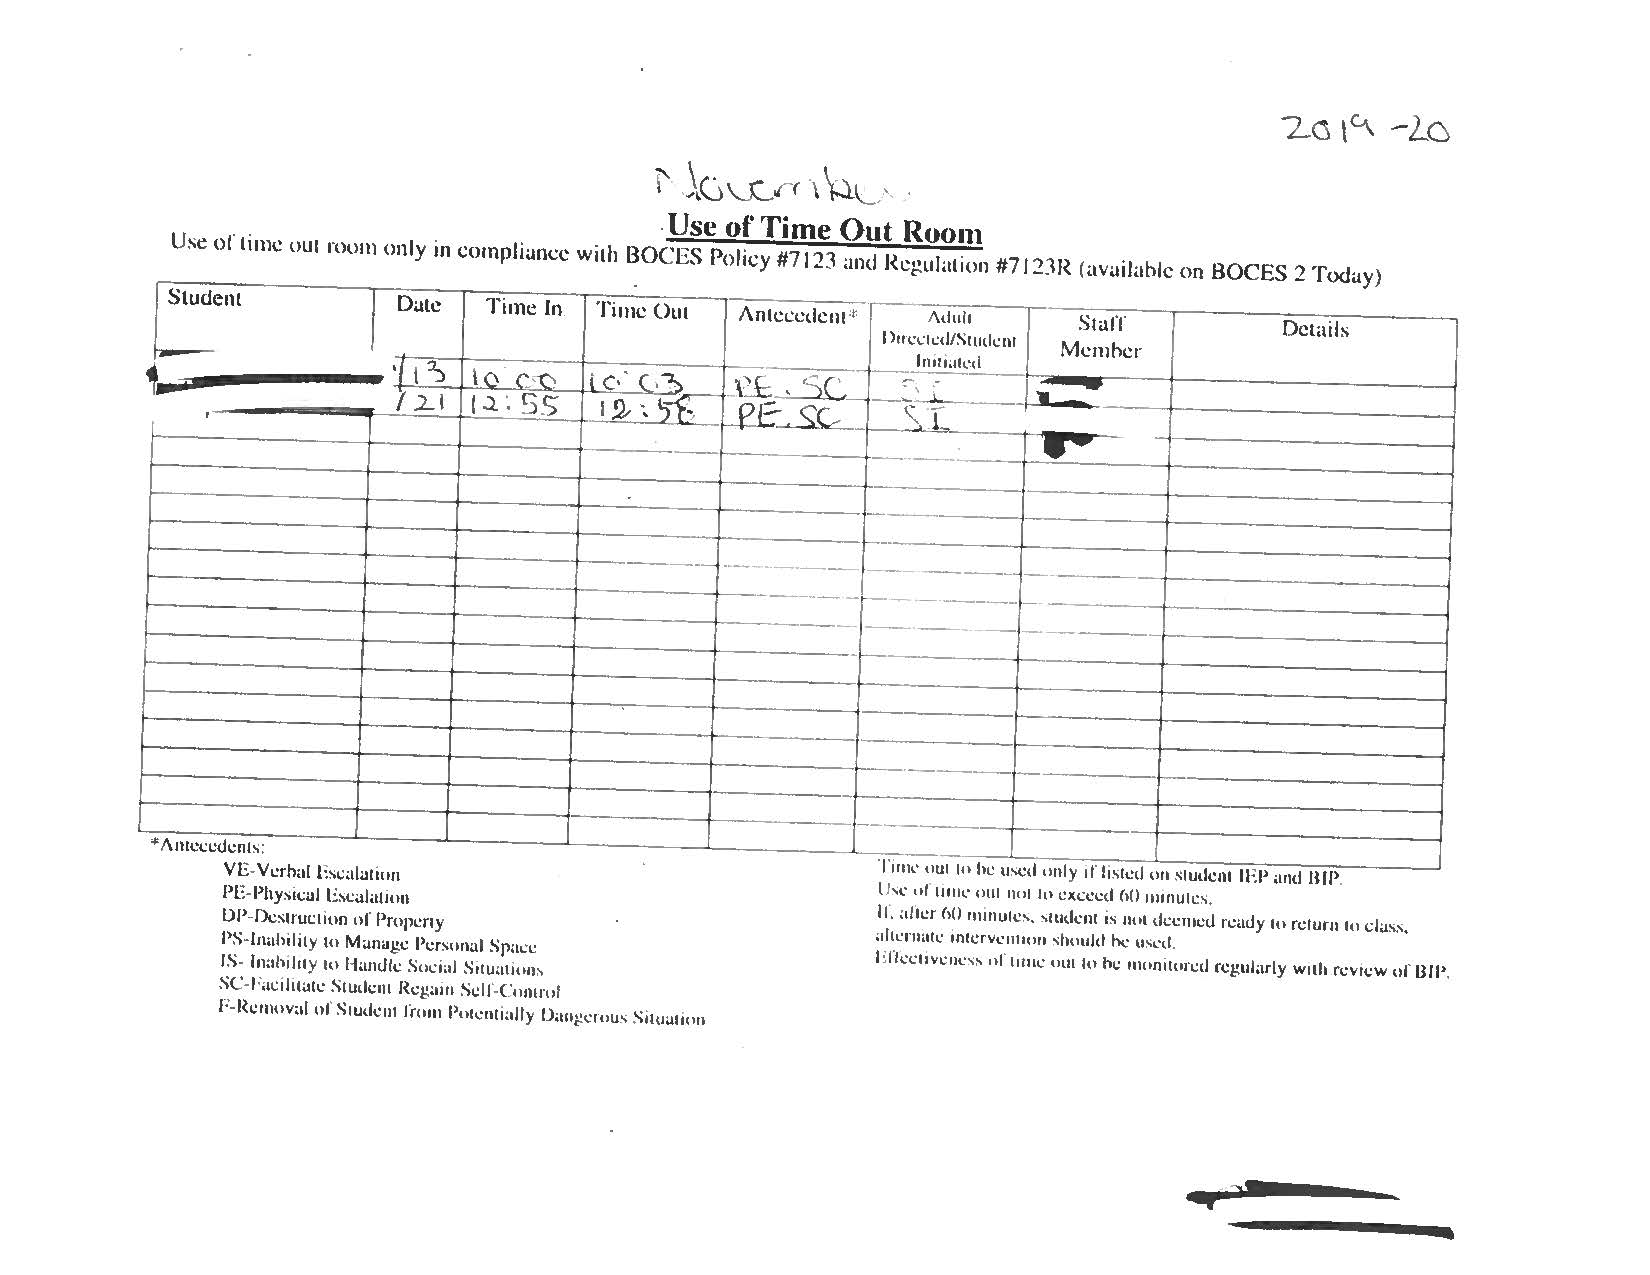 2019-20
November
Use of Time Out Room
Use of time out room only in compliance with BOCES Policy #7123 and Regulation #7123R (available on BOCES 2 Today)
Student Date Time In Time Out Antecedent* Adult Directed/Student Initiated Staff Member Details
/13 10:00 10:03 PE. SC SI
/21 12:55 PE. SC SI
*Antecedents:
VE-Verbal Escalation
PE-Physical Escalation
DP-Destruction of Property
PS-Inability to Manage Personal Space
IS- Inability to Handle Social Situations
SC-Facilitate Student Regain Self-Control
F-Removal of Student from Potentially Dangerous Situation
Time out to be used only if listed on student IEP and BIP.
Use of time out not to exceed 60 minutes.
If, after 60 minutes, student is not deemed ready to return to class,
alternate intervention should be used.
Effectiveness of time out to be monitored regularly with review of BIP.